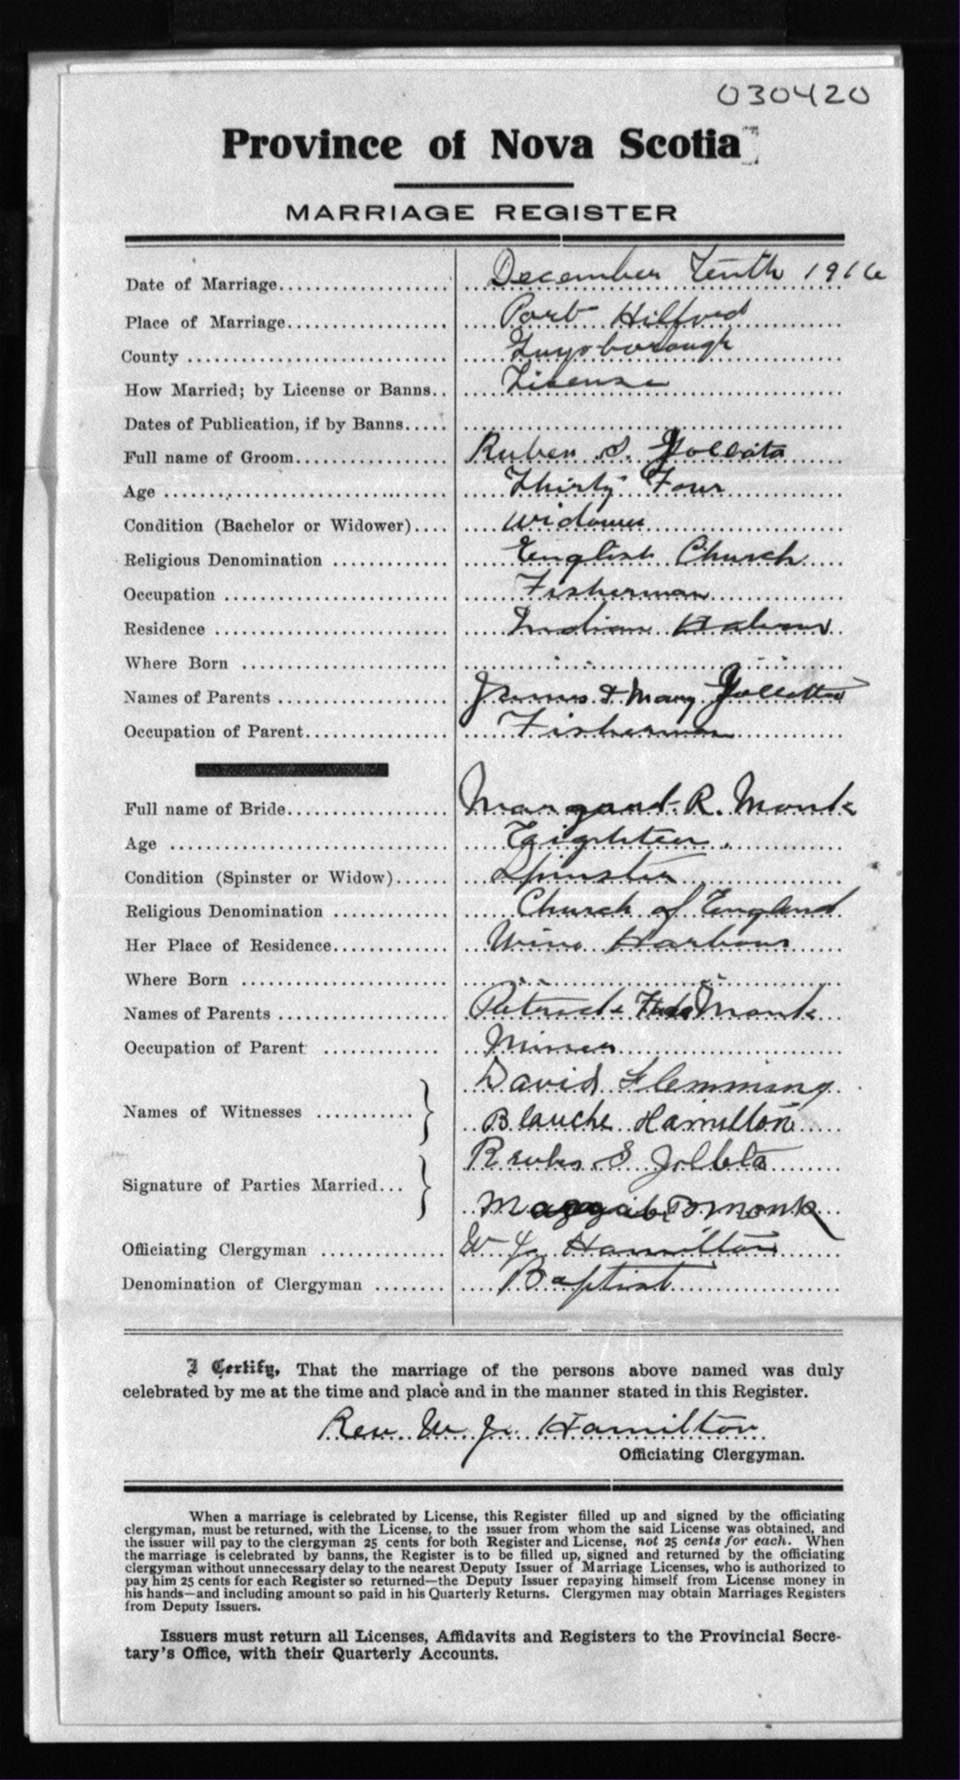 030420
Province of Nova Scotia
MARRIAGE REGISTER
Date of Marriage December Tenth 1916
Place of Marriage Port Hilford
County Guysborough
How Married; by License or Banns License
Dates of Publication, if by Banns
Full name of Groom Ruben S.
Age Thirty Four
Condition (Bachelor or Widower) Widower
Religious Denomination English Church
Occupation Fisherman
Residence Indian
Where Born " "
Names of Parents James & Mary
Occupation of Parent Fisherman
Full name of Bride R. Monk
Age Eighteen
Condition (Spinster or Widow) Spinster
Religious Denomination Church of England
Her Place of Residence Wine Harbour
Where Born " "
Names of Parents Patrick Monk
Occupation of Parent Miner
David Flemming
Names of Witnesses
Blanche Hamilton
S
Signature of Parties Married
Monk
Officiating Clergyman W J. Hamilton
Denomination of Clergyman Baptist
I Certify, That the marriage of the persons above named was duly
celebrated by me at the time and place and in the manner stated in this Register.
Rev. W. J. Hamilton
Officiating Clergyman.
When a marriage is celebrated by License, this Register filled up and signed by the officiating
clergyman, must be returned, with the License, to the issuer from whom the said License was obtained, and
the issuer will pay to the clergyman 25 cents for both Register and License, not 25 cents for each. When
the marriage is celebrated by banns, the Register is to be filled up, signed and returned by the officiating
clergyman without unnecessary delay to the nearest Deputy Issuer of Marriage Licenses, who is authorized to
pay him 25 cents for each Register so returned—the Deputy Issuer repaying himself from License money in
his hands—and including amount so paid in his Quarterly Returns. Clergymen may obtain Marriages Registers
from Deputy Issuers.
Issuers must return all Licenses, Affidavits and Registers to the Provincial Secre-
tary's Office, with their Quarterly Accounts.